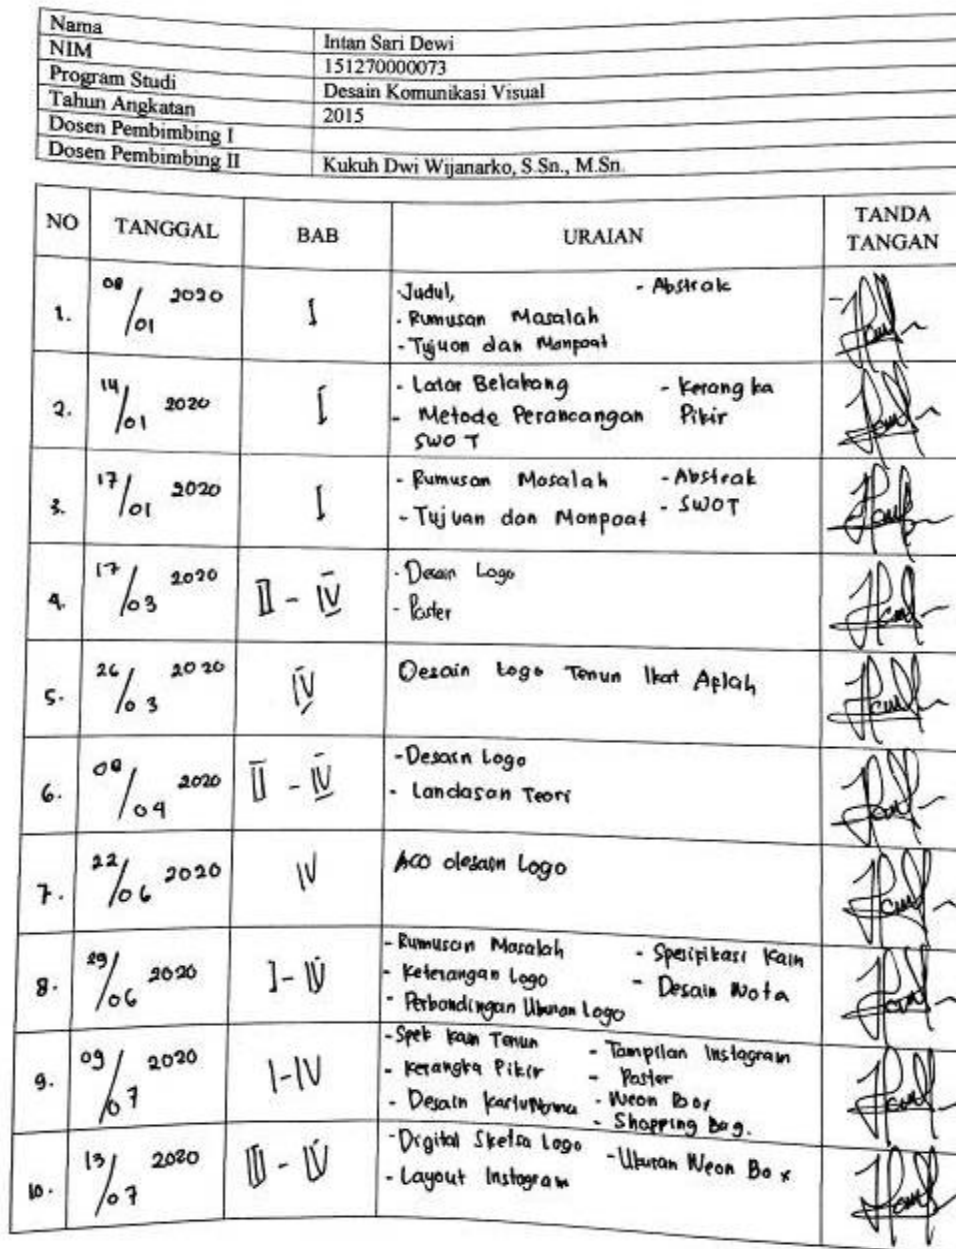 Nama
Intan Sari Dewi
NIM
151270000073
Program Studi
Desain Komunikasi Visual
Tahun Angkatan
2015
Dosen Pembimbing I
Dosen Pembimbing II
Kukuh Dwi Wijanarko, S.Sn., M.Sn.
NO TANGGAL BAB URAIAN TANDA TANGAN
1. 08/01 2020 I
- Judul, - Abstrak
- Rumusan Masalah
- Tujuan dan Manpaat
2. 14/01 2020 I
- Latar Belakang - Kerangka
- Metode Perancangan Pikir
SWOT
3. 17/01 2020 I
- Rumusan Masalah - Abstrak
- Tujuan dan Manpaat - SWOT
4. 17/03 2020 II - IV
- Desain Logo
- Poster
5. 26/03 2020 IV
Desain Logo Tenun Ikat Aplah
6. 08/04 2020 II - IV
- Desain Logo
- Landasan Teori
7. 22/06 2020 IV
ACO desain Logo
8. 29/06 2020 I - IV
- Rumusan Masalah - Spesipikasi Kain
- Keterangan Logo - Desain Nota
- Perbandingan Ukuran Logo
9. 09/07 2020 I-IV
- Spek Kain Tenun - Tampilan Instagram
- Kerangka Pikir - Poster
- Desain Kartu Nama - Neon Box
- Shopping Bag.
10. 13/07 2020 III - IV
- Digital Sketsa Logo - Ukuran Neon Box
- Layout Instagram